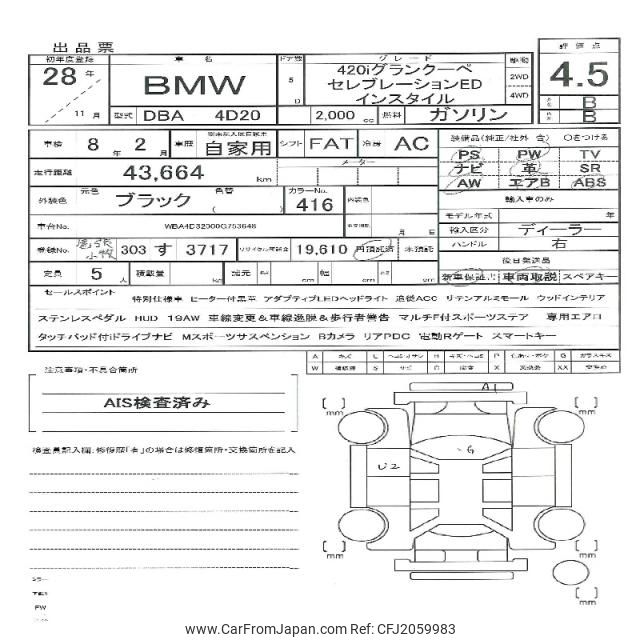 出品票
初年度登録 車名 ドア数 グレード 駆動 評価点
28年 BMW 5 D 420iグランクーペ 2WD 4.5
セレブレーションED 4WD
インスタイル
11月 型式 DBA 4D20 2,000 cc 燃料 ガソリン B
B
車検 8年2月 車歴 自家用 シフト FAT 冷房 AC 装備品(純正/社外 含) ○をつける
PS PW TV
走行距離 43,664 km メーター ナビ 革 SR
AW エアB ABS
外装色 元色 ブラック 色替 カラーNo. 416 内装色 輸入車のみ
モデル年式 年
車台No. WBA4D32000G753648 月 日 輸入区分 ディーラー
登録No. 尾張小牧 303 す 3717 リサイクル預託金 19,610 円 預託済 未預託 ハンドル 右
後日発送品
定員 5人 積載量 kg 諸元 長 cm 幅 cm 高 cm 新車保証書 車両取説 スペアキー
セールスポイント 特別仕様車 ヒーター付黒革 アダプティブLEDヘッドライト 追従ACC リテンアルミモール ウッドインテリア
ステンレスペダル HUD 19AW 車線変更&車線逸脱&歩行者警告 マルチF付スポーツステア 専用エアロ
タッチパッド付iドライブナビ Mスポーツサスペンション Bカメラ リアPDC 電動Rゲート スマートキー
注意事項・不具合箇所
AIS検査済み
検査員記入欄:修復歴「有」の場合は修復箇所・交換箇所を記入
A L H P G
W S C X XX
A1
G
U2
mm
mm
mm
mm
mm
PW
www.CarFromJapan.com Ref: CFJ2059983